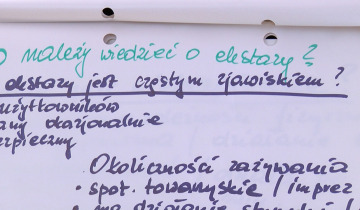 O należy wiedzieć o ekstazy?
ekstazy jest częstym zjawiskiem?
użytkowników
okazjonalnie
Okoliczności zażywania
• spot. towarzyskie / imprez
• ma działanie